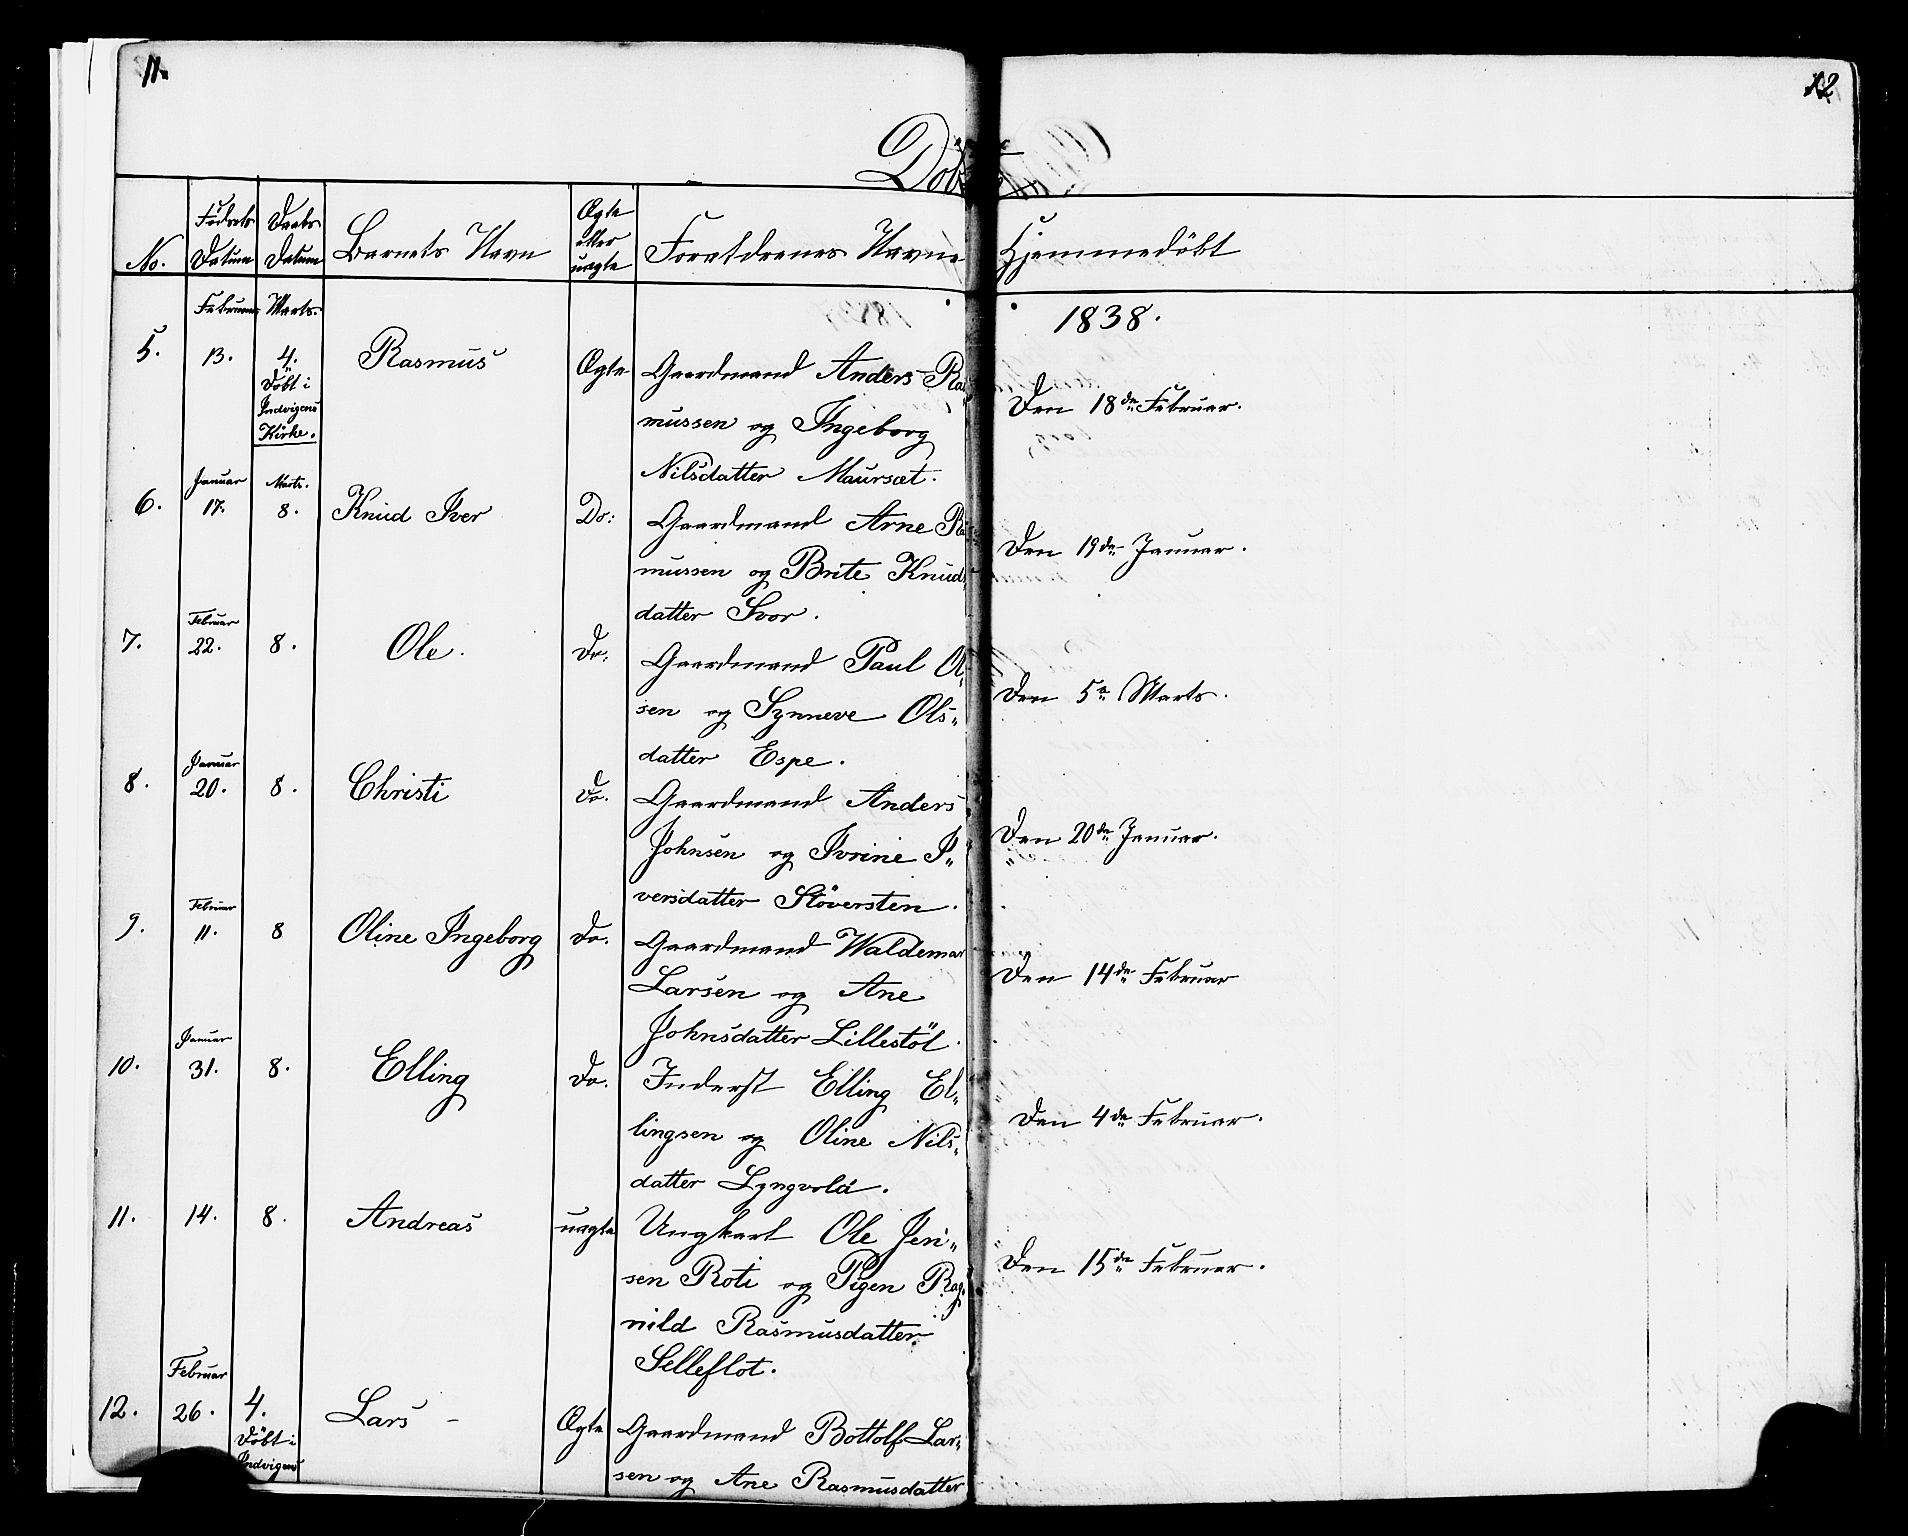 11.
12
Döbte
No.
Födsels Datum
Daabs Datum
Barnets Navn
Ægte eller uægte
Forældrenes Navne
Hjemmedöbt
1838.
Februar Marts.
5. 13. 4. Rasmus Ægte Gaardmand Anders Ras
Döbt i
Indvigens
Kirke.
mussen og Ingeborg
Nilsdatter Maurset.
Den 18de Februar.
Januar Marts.
6. 17. 8. Knud Iver Do: Gaardmand Arne Ras
mussen og Brite Knuds
datter Svor.
Den 19de Januar.
Februar
7. 22. 8. Ole. Do: Gaardmand Paul Ol
sen og Synneve Ols„
datter Espe.
Den 5te Marts.
Januar
8. 20. 8. Christi Do. Gaardmand Anders
Johnsen og Ivrine I„
versdatter Stöversten.
Den 20de Januar.
Februar
9. 11. 8 Oline Ingeborg Do. Gaardmand Waldemar
Larsen og Ane
Johnsdatter Lillestöl.
Den 14de Februar
Januar
10. 31. 8. Elling Do. Inderst Elling El„
lingsen og Oline Nils„
datter Lyngvold.
Den 4de Februar.
11. 14. 8. Andreas uægte Ungkarl Ole Jen„
sen Roti og Pigen Rag„
nild Rasmusdatter
Selleflot.
Den 15de Februar.
Februar
12. 26. 4. Lars Ægte Gaardmand Bottolf Lar„
Döbt i
Indvigens
sen og Ane Rasmusdatter